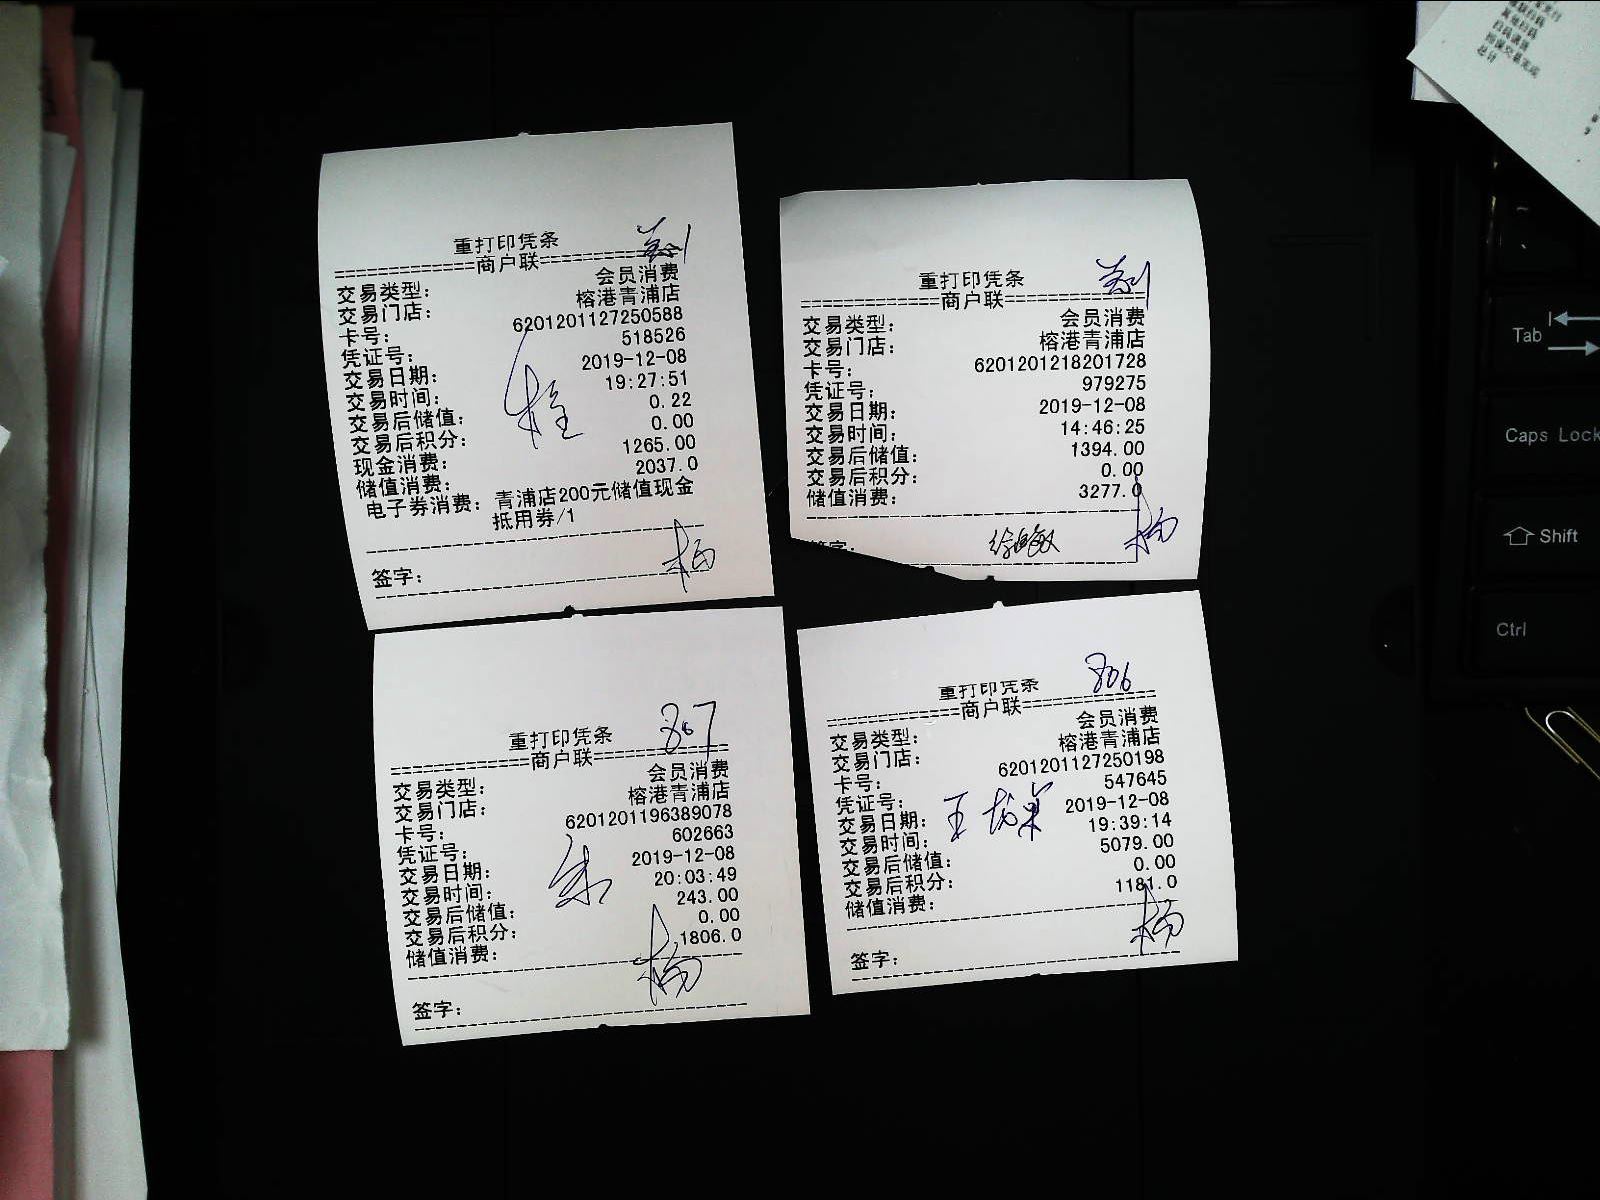 重打印凭条
==============商户联==============
交易类型: 会员消费
交易门店: 榕港青浦店
卡号: 6201201127250588
凭证号: 518526
交易日期: 2019-12-08
交易时间: 19:27:51
交易后储值: 0.22
交易后积分: 0.00
现金消费: 1265.00
储值消费: 2037.0
电子券消费: 青浦店200元储值现金
抵用券/1
杨
签字:
重打印凭条
==============商户联==============
交易类型: 会员消费
交易门店: 榕港青浦店
卡号: 6201201218201728
凭证号: 979275
交易日期: 2019-12-08
交易时间: 14:46:25
交易后储值: 1394.00
交易后积分: 0.00
储值消费: 3277.0
签字: 杨
重打印凭条 807
==============商户联==============
交易类型: 会员消费
交易门店: 榕港青浦店
卡号: 6201201196389078
凭证号: 602663
交易日期: 2019-12-08
交易时间: 20:03:49
交易后储值: 243.00
交易后积分: 0.00
储值消费: 1806.0
杨
签字:
重打印凭条 806
==============商户联==============
交易类型: 会员消费
交易门店: 榕港青浦店
卡号: 6201201127250198
凭证号: 547645
交易日期: 2019-12-08
交易时间: 19:39:14
交易后储值: 5079.00
交易后积分: 0.00
储值消费: 1181.0
杨
签字:
~
Tab
Caps Lock
Shift
Ctrl